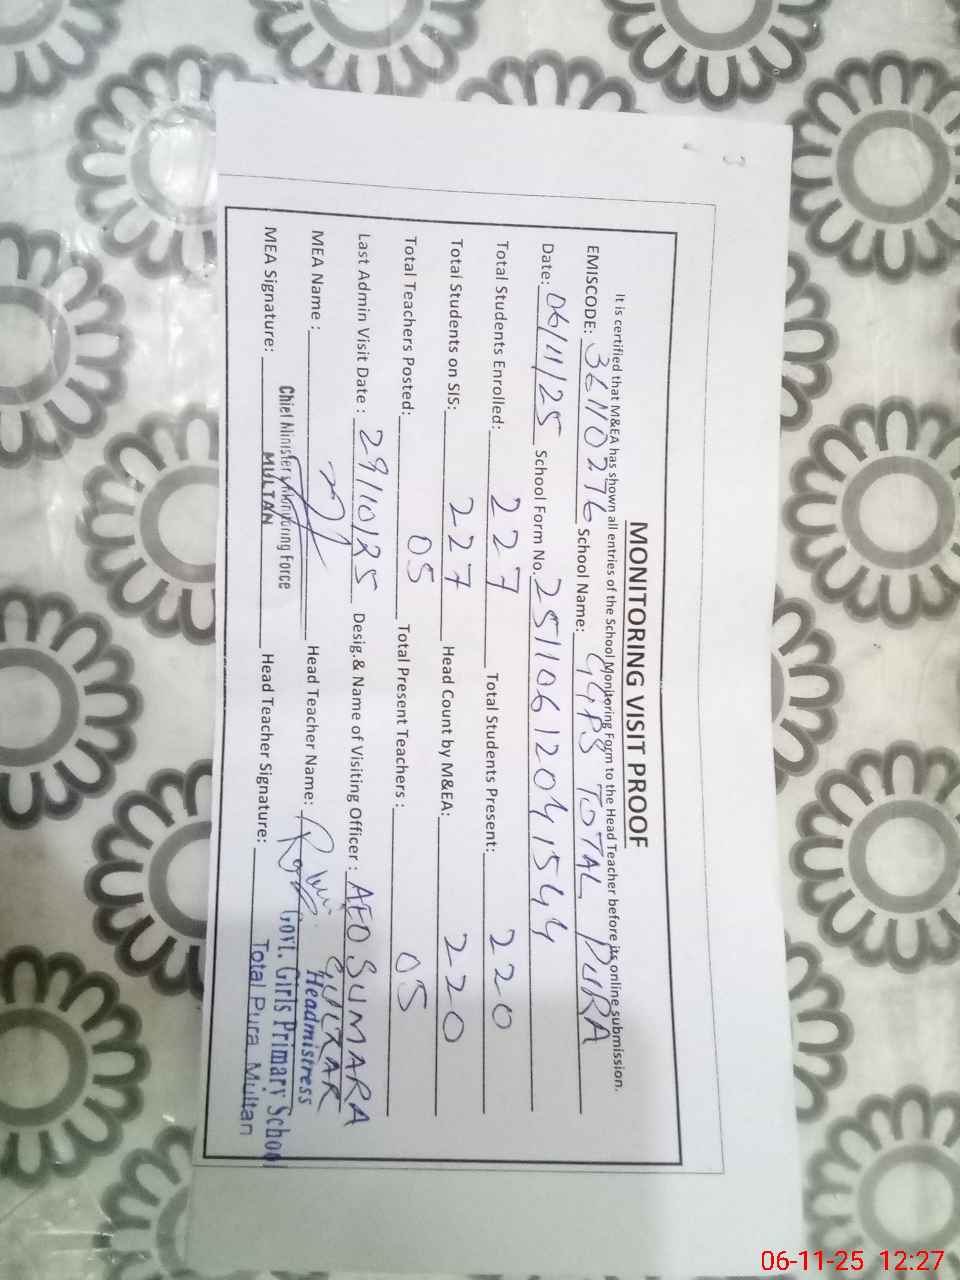 MONITORING VISIT PROOF
It is certified that M&EA has shown all entries of the School Monitoring Form to the Head Teacher before its online submission.
EMISCODE: 36110276 School Name: GGPS TOTAL PURA
Date: 06/11/25 School Form No. 25110612041544
Total Students Enrolled: 227 Total Students Present: 220
Total Students on SIS: 227 Head Count by M&EA: 220
Total Teachers Posted: 05 Total Present Teachers : 05
Last Admin Visit Date : 29/10/25 Desig.& Name of Visiting Officer : AEO SUMARA GULZAR
MEA Name : Head Teacher Name:
Chief Minister's Monitoring Force
MULTAN
Headmistress
Govt. Girls Primary School
Total Pura Multan
MEA Signature: Head Teacher Signature:
06-11-25 12:27